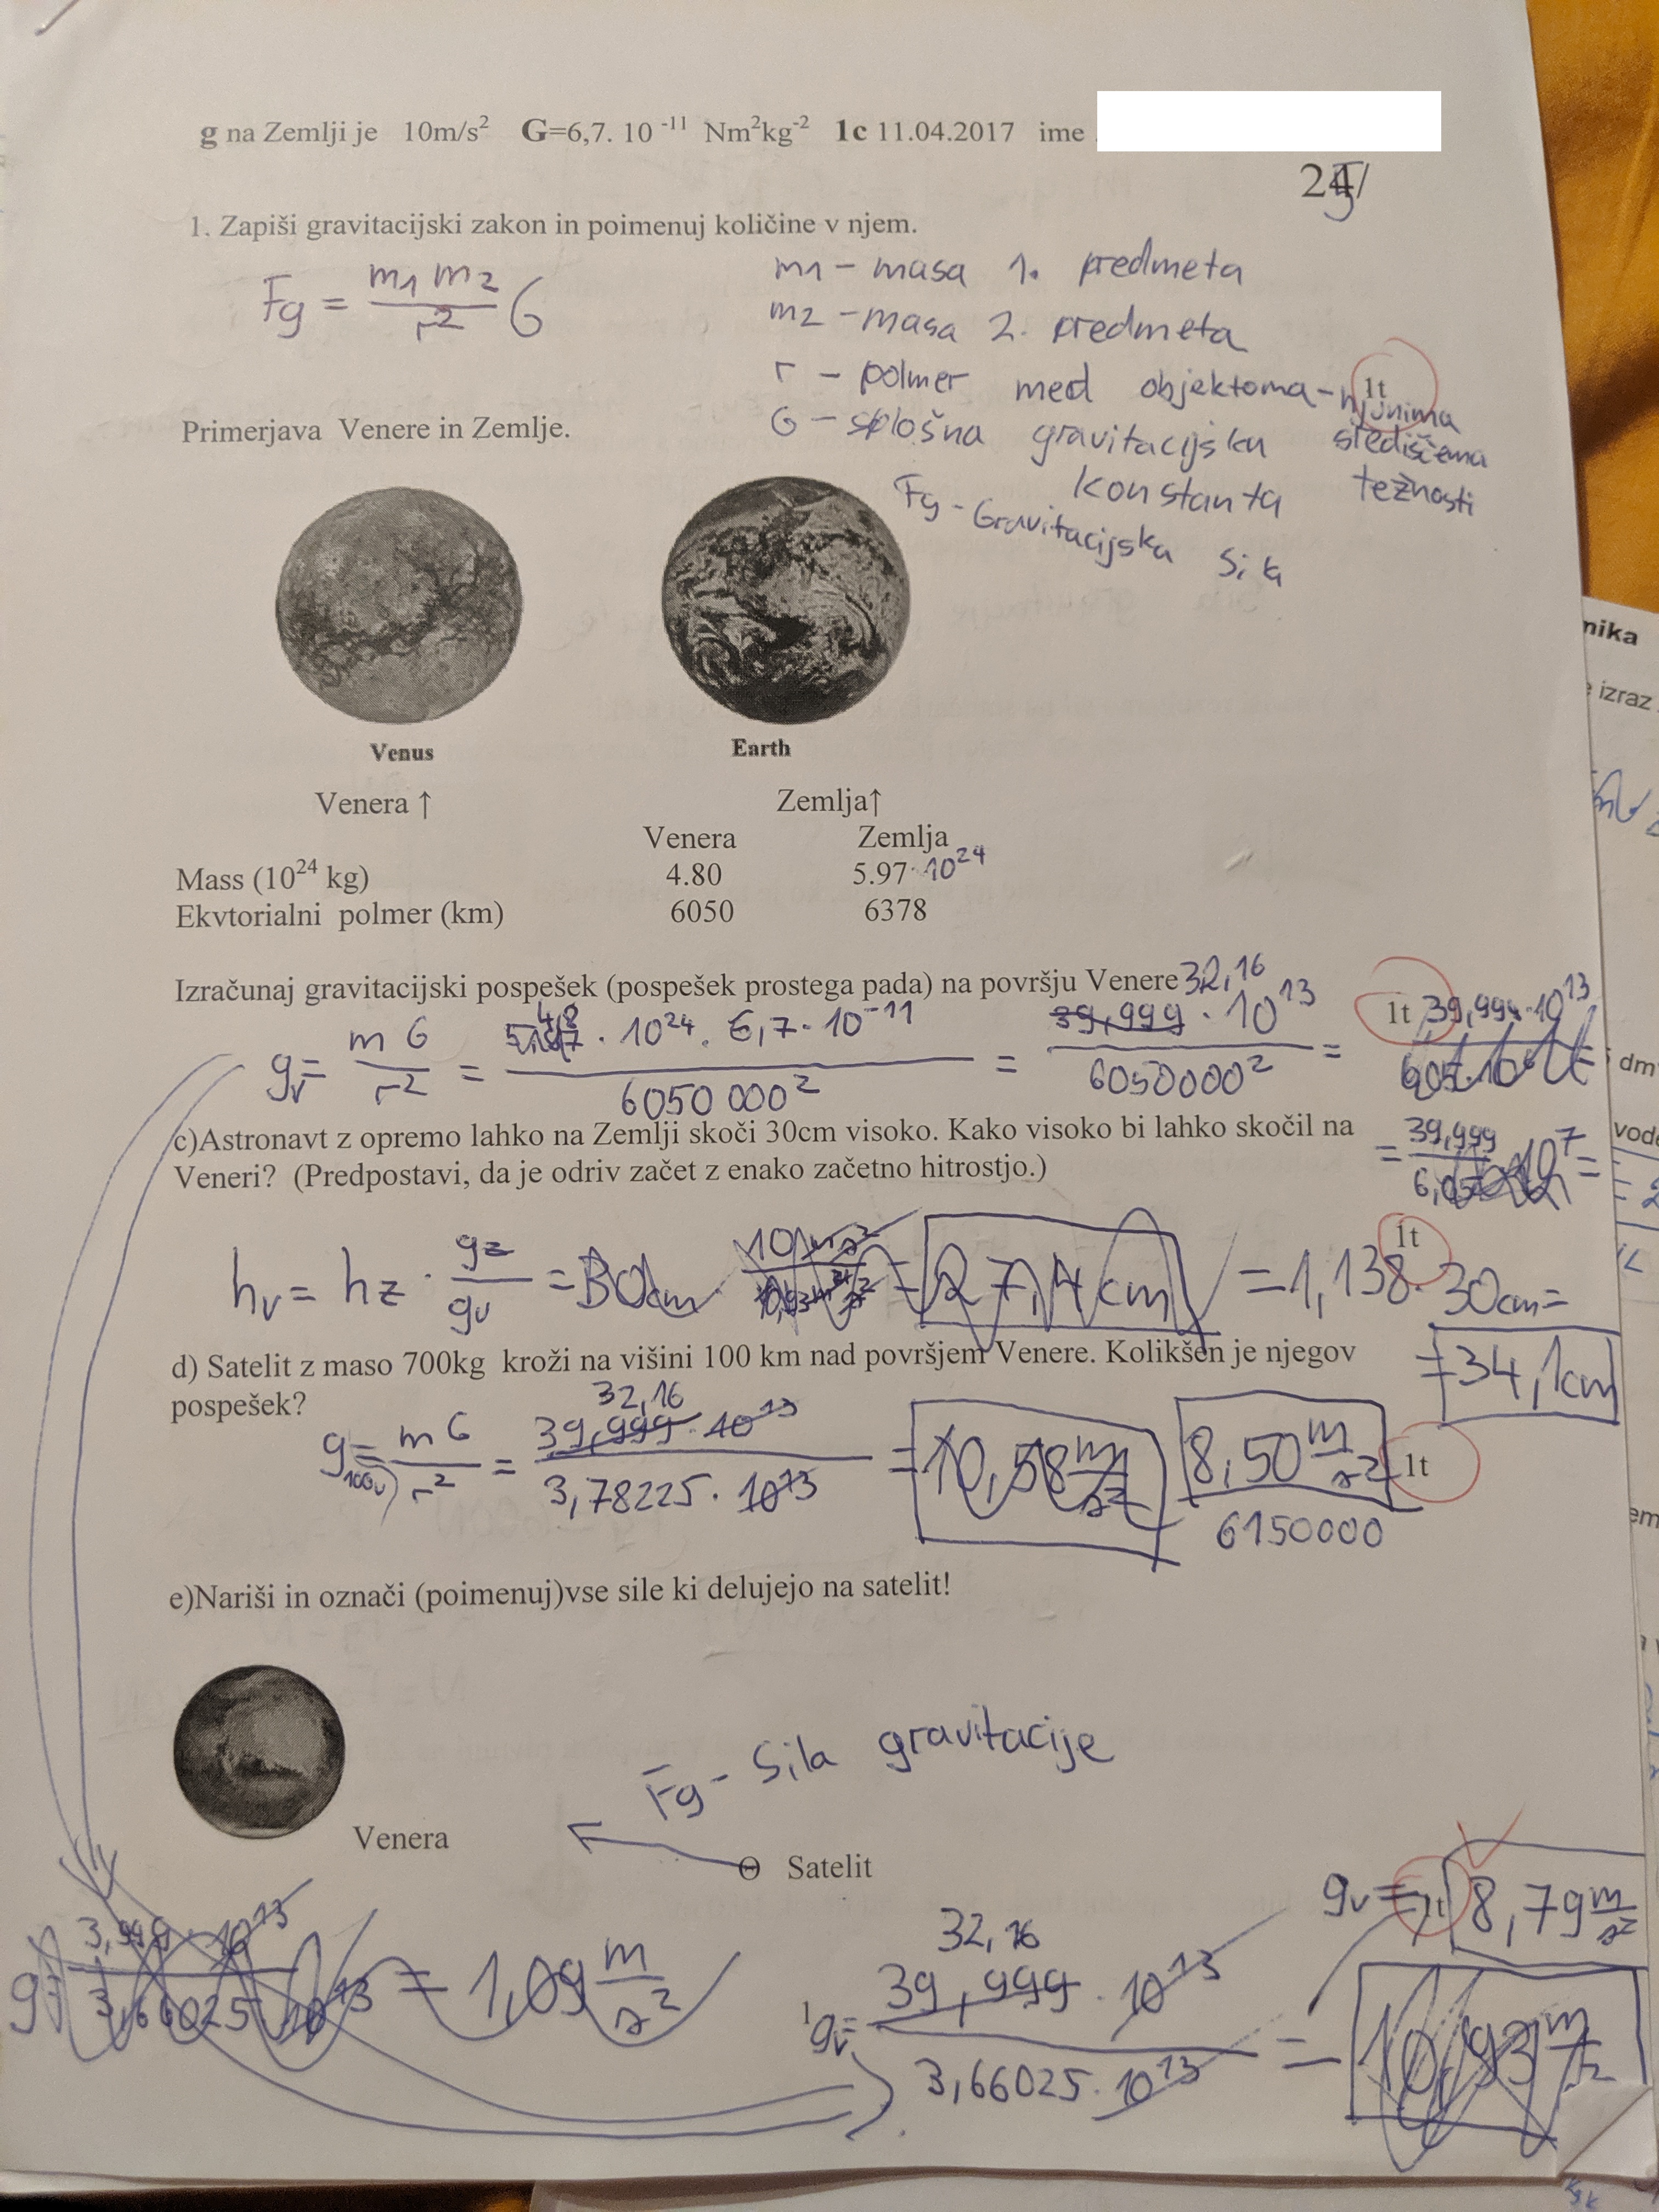 g na Zemlji je 10m/s² G=6,7. 10 ⁻¹¹ Nm²kg⁻² 1c 11.04.2017 ime .
25/
1. Zapiši gravitacijski zakon in poimenuj količine v njem.
Fg = m1 m2 / r² G
m1 – masa 1. predmeta
m2 – masa 2. predmeta
r – polmer med objektoma – njunima središčema težnosti
1t
G – splošna gravitacijska konstanta
Fg - Gravitacijska sila
Primerjava Venere in Zemlje.
Venus
Earth
Venera ↑ Zemlja↑
Venera Zemlja
Mass (10²⁴ kg) 4.80 5.97 · 10²⁴
Ekvtorialni polmer (km) 6050 6378
Izračunaj gravitacijski pospešek (pospešek prostega pada) na površju Venere
1t
gv = m G / r² = 4,8 · 10²⁴ · 6,7 · 10⁻¹¹ / 6050 000² = 32,16 39,999 · 10¹³ / 6050000² = 39,999 · 10¹³
= 39,999 / 6,05 10⁷ =
c)Astronavt z opremo lahko na Zemlji skoči 30cm visoko. Kako visoko bi lahko skočil na
Veneri? (Predpostavi, da je odriv začet z enako začetno hitrostjo.)
1t
hv = hz · gz / gv = 30cm · 10 m/s² = 27,4 cm = 1,138 · 30cm =
= 34,1cm
d) Satelit z maso 700kg kroži na višini 100 km nad površjem Venere. Kolikšen je njegov
pospešek?
g100v = m G / r² = 32,16 39,999 · 10¹³ / 3,78225 · 10¹³ = 10,58 m/s² 8,50 m/s² 1t
6150000
e)Nariši in označi (poimenuj)vse sile ki delujejo na satelit!
Fg - Sila gravitacije
Venera
Satelit
gv = 1t 8,79 m/s²
g = 3,999 · 10¹³ / 3,66025 · 10¹³ = 1,09 m/s²
gv = 32,16 39,999 · 10¹³ / 3,66025 · 10¹³ = 10,93 m/s²
nika
izraz
dm
vode
em